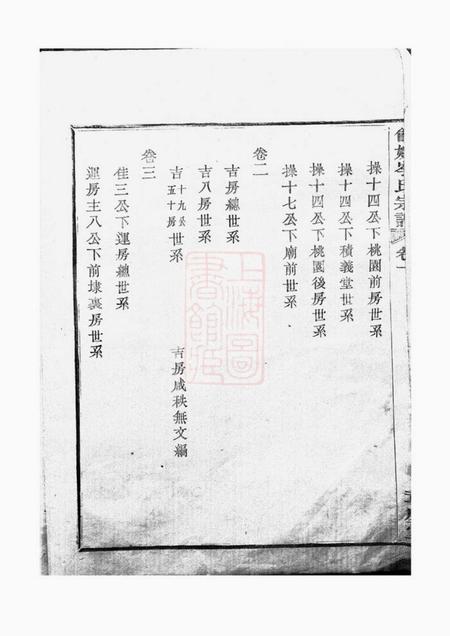 氏宗譜 卷一
操十四公下桃園前房世系
操十四公下積義堂世系
操十四公下桃園後房世系
操十七公下廟前世系
卷二
吉房總世系
吉八房世系
吉十九公五十房世系
吉房咸秩無文編
卷三
佳三公下運房總世系
運房主八公下前埭裏房世系
上海圖書館藏